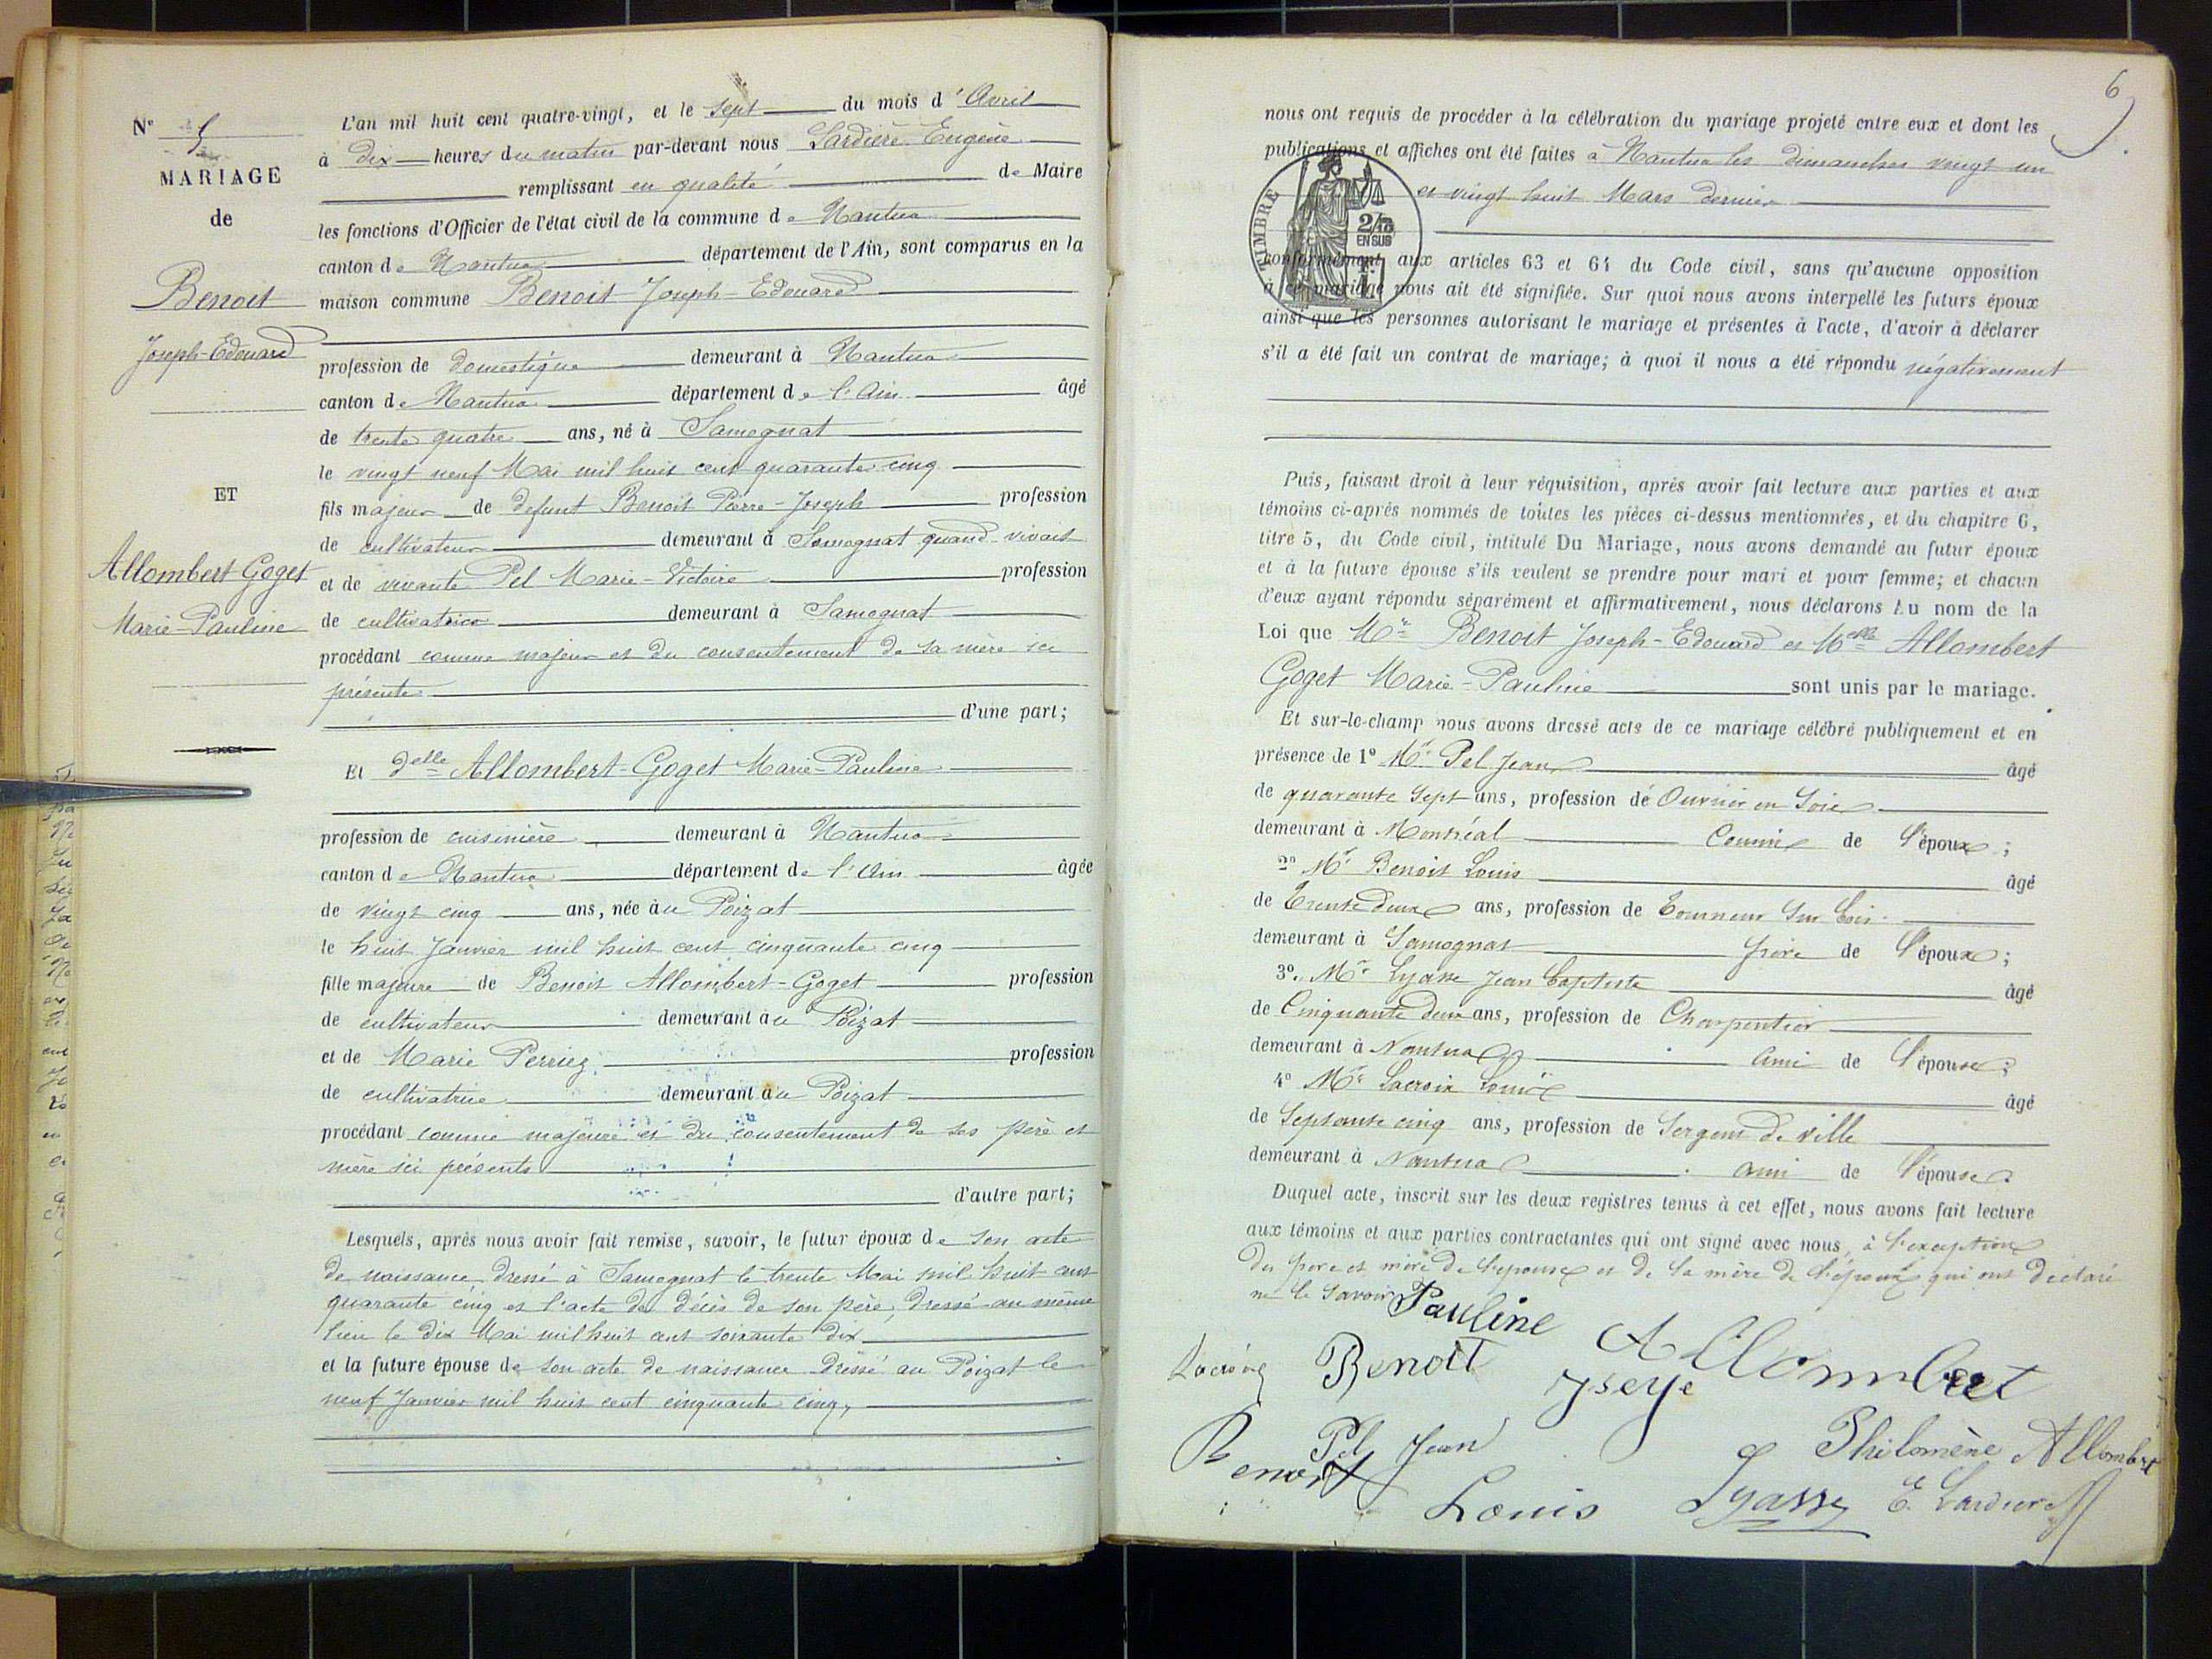 N° 5
MARIAGE
de
Benoit
Joseph-Edouard
ET
Allombert-Goget
Marie-Pauline
L'an mil huit cent quatre-vingt, et le sept du mois d'Avril
à dix heures du matin par-devant nous Lardière Eugène
remplissant en qualité de Maire
les fonctions d'Officier de l'état civil de la commune de Nantua
canton de Nantua département de l'Ain, sont comparus en la
maison commune Benoit Joseph-Edouard
profession de domestique demeurant à Nantua
canton de Nantua département de l'Ain âgé
de trente quatre ans, né à Samognat
le vingt neuf Mai mil huit cent quarante cinq
fils majeur de défunt Benoit Pierre-Joseph profession
de cultivateur demeurant à Samognat quand vivait
et de vivante Pel Marie-Victoire profession
de cultivatrice demeurant à Samognat
procédant comme majeur et du consentement de sa mère ici
présente
d'une part;
Et Delle Allombert-Goget Marie-Pauline
profession de cuisinière demeurant à Nantua
canton de Nantua département de l'Ain âgée
de vingt cinq ans, née au Poizat
le huit Janvier mil huit cent cinquante cinq
fille majeure de Benoit Allombert-Goget profession
de cultivateur demeurant au Poizat
et de Marie Perriez profession
de cultivatrice demeurant au Poizat
procédant comme majeure et du consentement de ses père et
mère ici présents
d'autre part;
Lesquels, après nous avoir fait remise, savoir, le futur époux de son acte
de naissance dressé à Samognat le trente Mai mil huit cent
quarante cinq et l'acte de décès de son père, dressé au même
lieu le dix Mai mil huit cent soixante dix
et la future épouse de son acte de naissance dressé au Poizat le
neuf Janvier mil huit cent cinquante cinq,
6
nous ont requis de procéder à la célébration du mariage projeté entre eux et dont les
publications et affiches ont été faites à Nantua les dimanches vingt un
et vingt huit Mars dernier
TIMBRE
2/10
EN SUS
conformément aux articles 63 et 64 du Code civil, sans qu'aucune opposition
à ce mariage nous ait été signifiée. Sur quoi nous avons interpellé les futurs époux
ainsi que les personnes autorisant le mariage et présentes à l'acte, d'avoir à déclarer
s'il a été fait un contrat de mariage; à quoi il nous a été répondu négativement
Puis, faisant droit à leur réquisition, après avoir fait lecture aux parties et aux
témoins ci-après nommés de toutes les pièces ci-dessus mentionnées, et du chapitre 6,
titre 5, du Code civil, intitulé Du Mariage, nous avons demandé au futur époux
et à la future épouse s'ils veulent se prendre pour mari et pour femme; et chacun
d'eux ayant répondu séparément et affirmativement, nous déclarons au nom de la
Loi que Mr Benoit Joseph-Edouard et Melle Allombert
Goget Marie-Pauline sont unis par le mariage.
Et sur-le-champ nous avons dressé acte de ce mariage célébré publiquement et en
présence de 1° Mr Pel Jean âgé
de quarante sept ans, profession de Ouvrier en Soie
demeurant à Montréal Cousin de l'époux;
2° Mr Benoit Louis âgé
de Trente deux ans, profession de Tourneur sur bois
demeurant à Samognat frère de l'époux;
3°. Mr Lyasse Jean baptiste âgé
de Cinquante deux ans, profession de Charpentier
demeurant à Nantua ami de l'épouse;
4° Mr Lacroix Louis âgé
de Septante cinq ans, profession de Sergent de ville
demeurant à Nantua ami de l'épouse.
Duquel acte, inscrit sur les deux registres tenus à cet effet, nous avons fait lecture
aux témoins et aux parties contractantes qui ont signé avec nous, à l'exception
des père et mère de l'épouse et de la mère de l'époux qui ont déclaré
ne le savoir
Pauline Allombert
Benoit
Pel Jean
Philomène Allombert
Benoit Louis
Lyasse E. Lardière